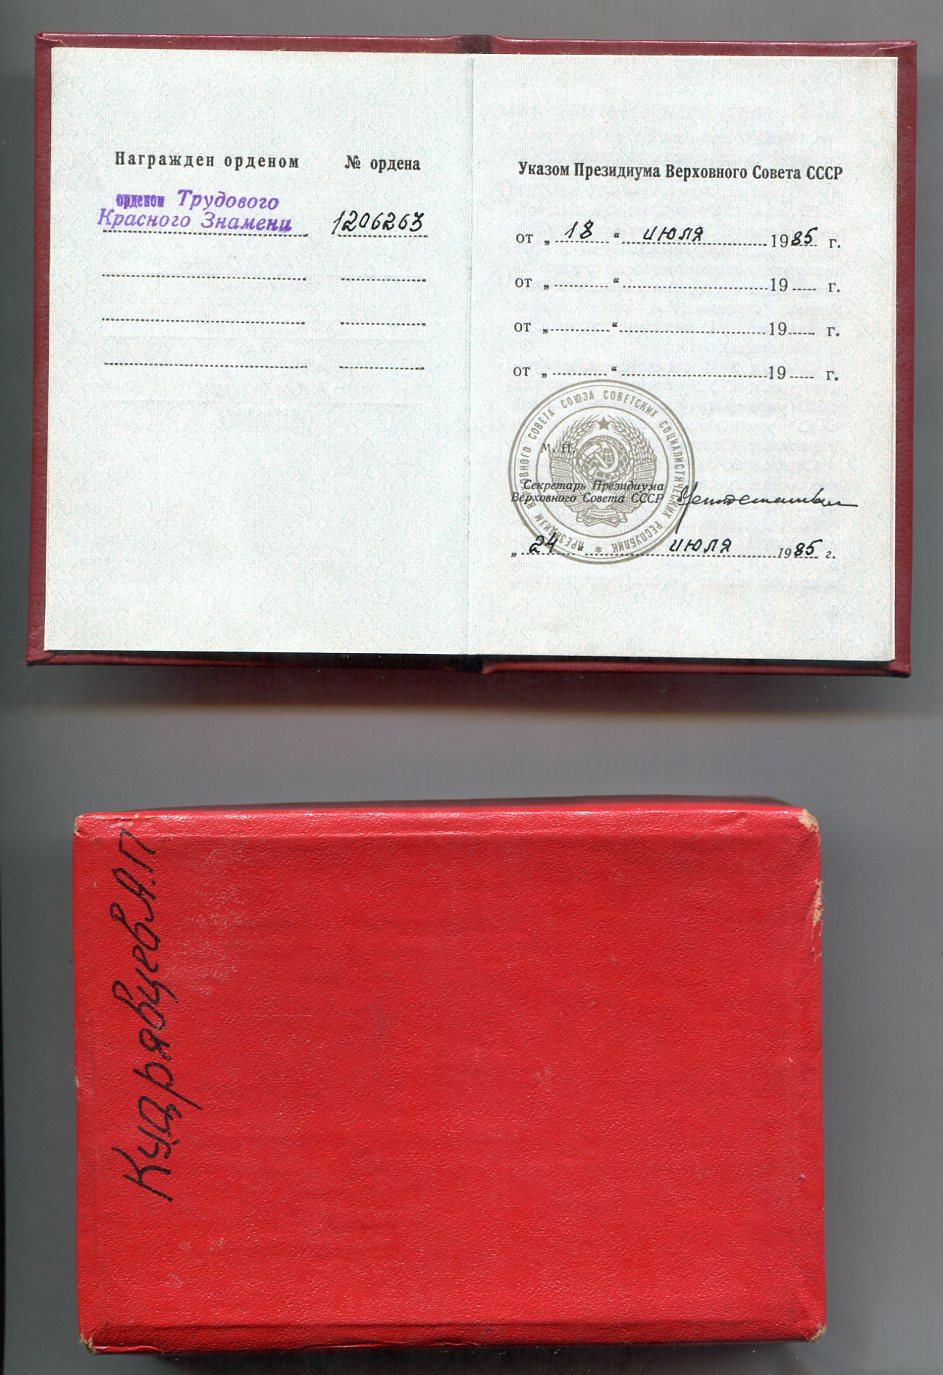 Награжден орденом № ордена
орденом Трудового
Красного Знамени 1206263
Указом Президиума Верховного Совета СССР
от „ 18 “ июля 1985 г.
от „ “ 19 г.
от „ “ 19 г.
от „ “ 19 г.
ПРЕЗИДИУМ ВЕРХОВНОГО СОВЕТА СОЮЗА СОВЕТСКИХ СОЦИАЛИСТИЧЕСКИХ РЕСПУБЛИК
М. П.
Секретарь Президиума
Верховного Совета СССР
„ 24 “ июля 1985 г.
Кудрявцев А.П